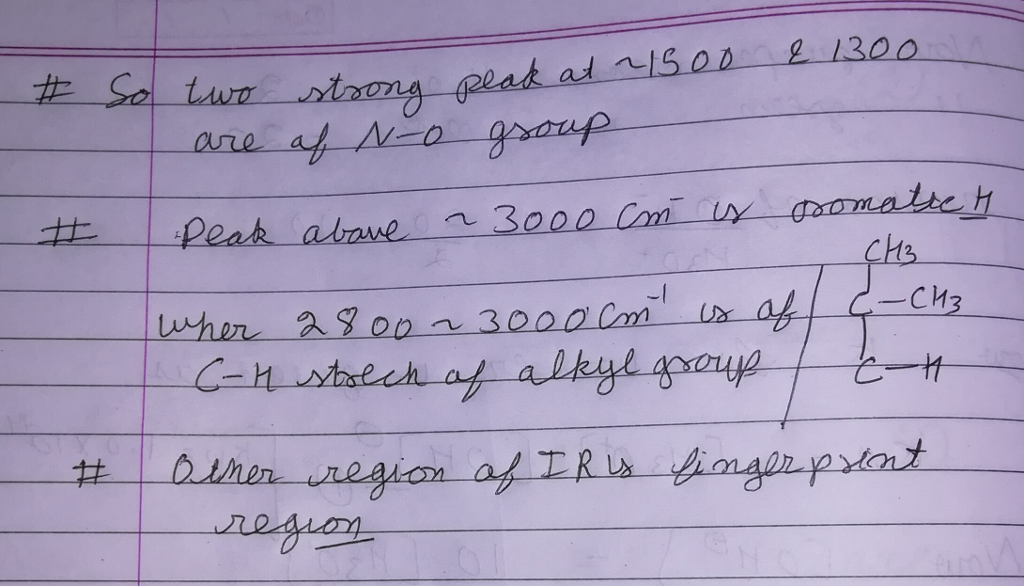 # So two strong peak at ~1500 & 1300
are of N-O group
# Peak above ~ 3000 cm⁻ is aromatic H
CH3
wher 2800 ~ 3000 cm⁻¹ is of / C-CH3
C-H strech of alkyl group C-H
# Other region of IR is fingerprint
region